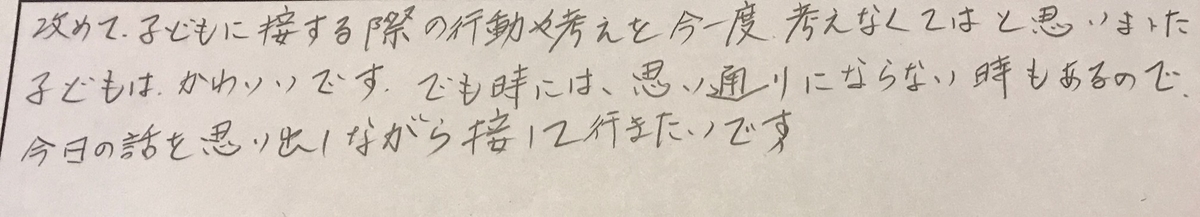 改めて、子どもに接する際の行動や考えを今一度、考えなくてはと思いました
子どもは、かわいいです。でも時には、思い通りにならない時もあるので、
今日の話を思い出しながら接して行きたいです